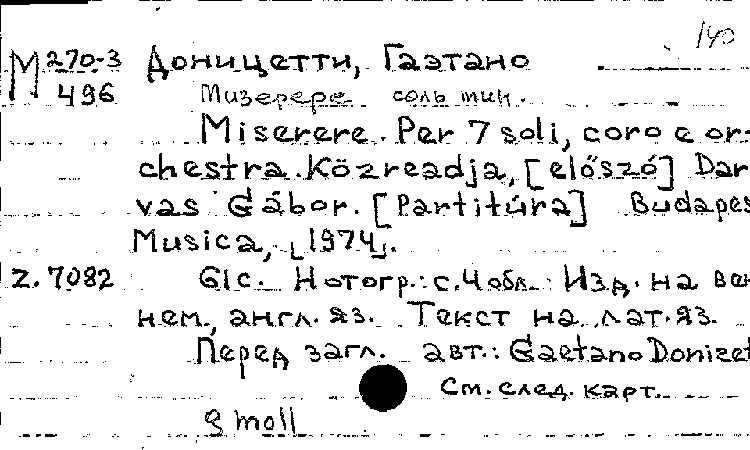 140
М 270-3 Доницетти, Гаэтано
496 Мизерере соль мин.
Miserere. Per 7 soli, coro e or-
chestra. Közreadja, [előszó] Dar
vas Gábor. [Partitúra] Budapes
Musica, [1974].
Z. 7082 61c. Нотогр.: с. 4 обл. Изд. на вен
нем., англ. яз. Текст на лат. яз.
Перед загл. авт.: Gaetano Donizet
См. след. карт.
g moll